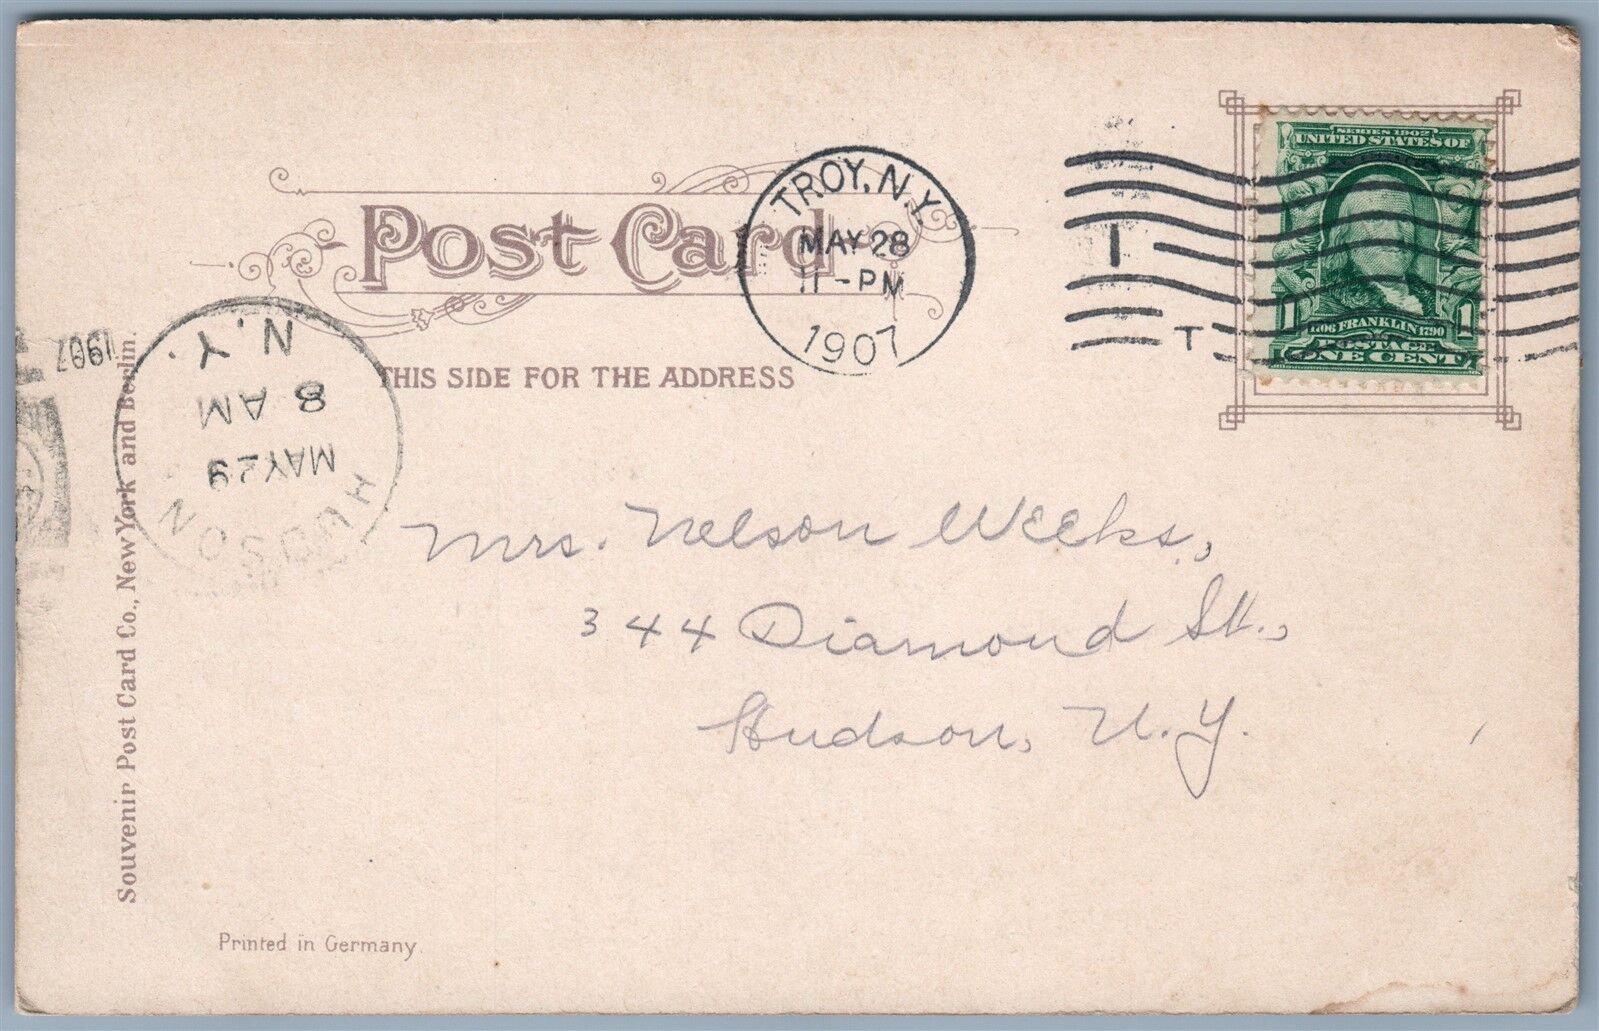 Post Card
THIS SIDE FOR THE ADDRESS
TROY, N.Y.
MAY 28
11-PM
1907
I
T
SERIES 1902
UNITED STATES OF
1 1706 FRANKLIN 1790 1
POSTAGE
ONE CENT
HUDSON
MAY 29
8 AM
N.Y.
1907
Mrs. Nelson Weeks,
344 Diamond St.,
Hudson, N.Y.
Souvenir Post Card Co., New York and Berlin.
Printed in Germany.